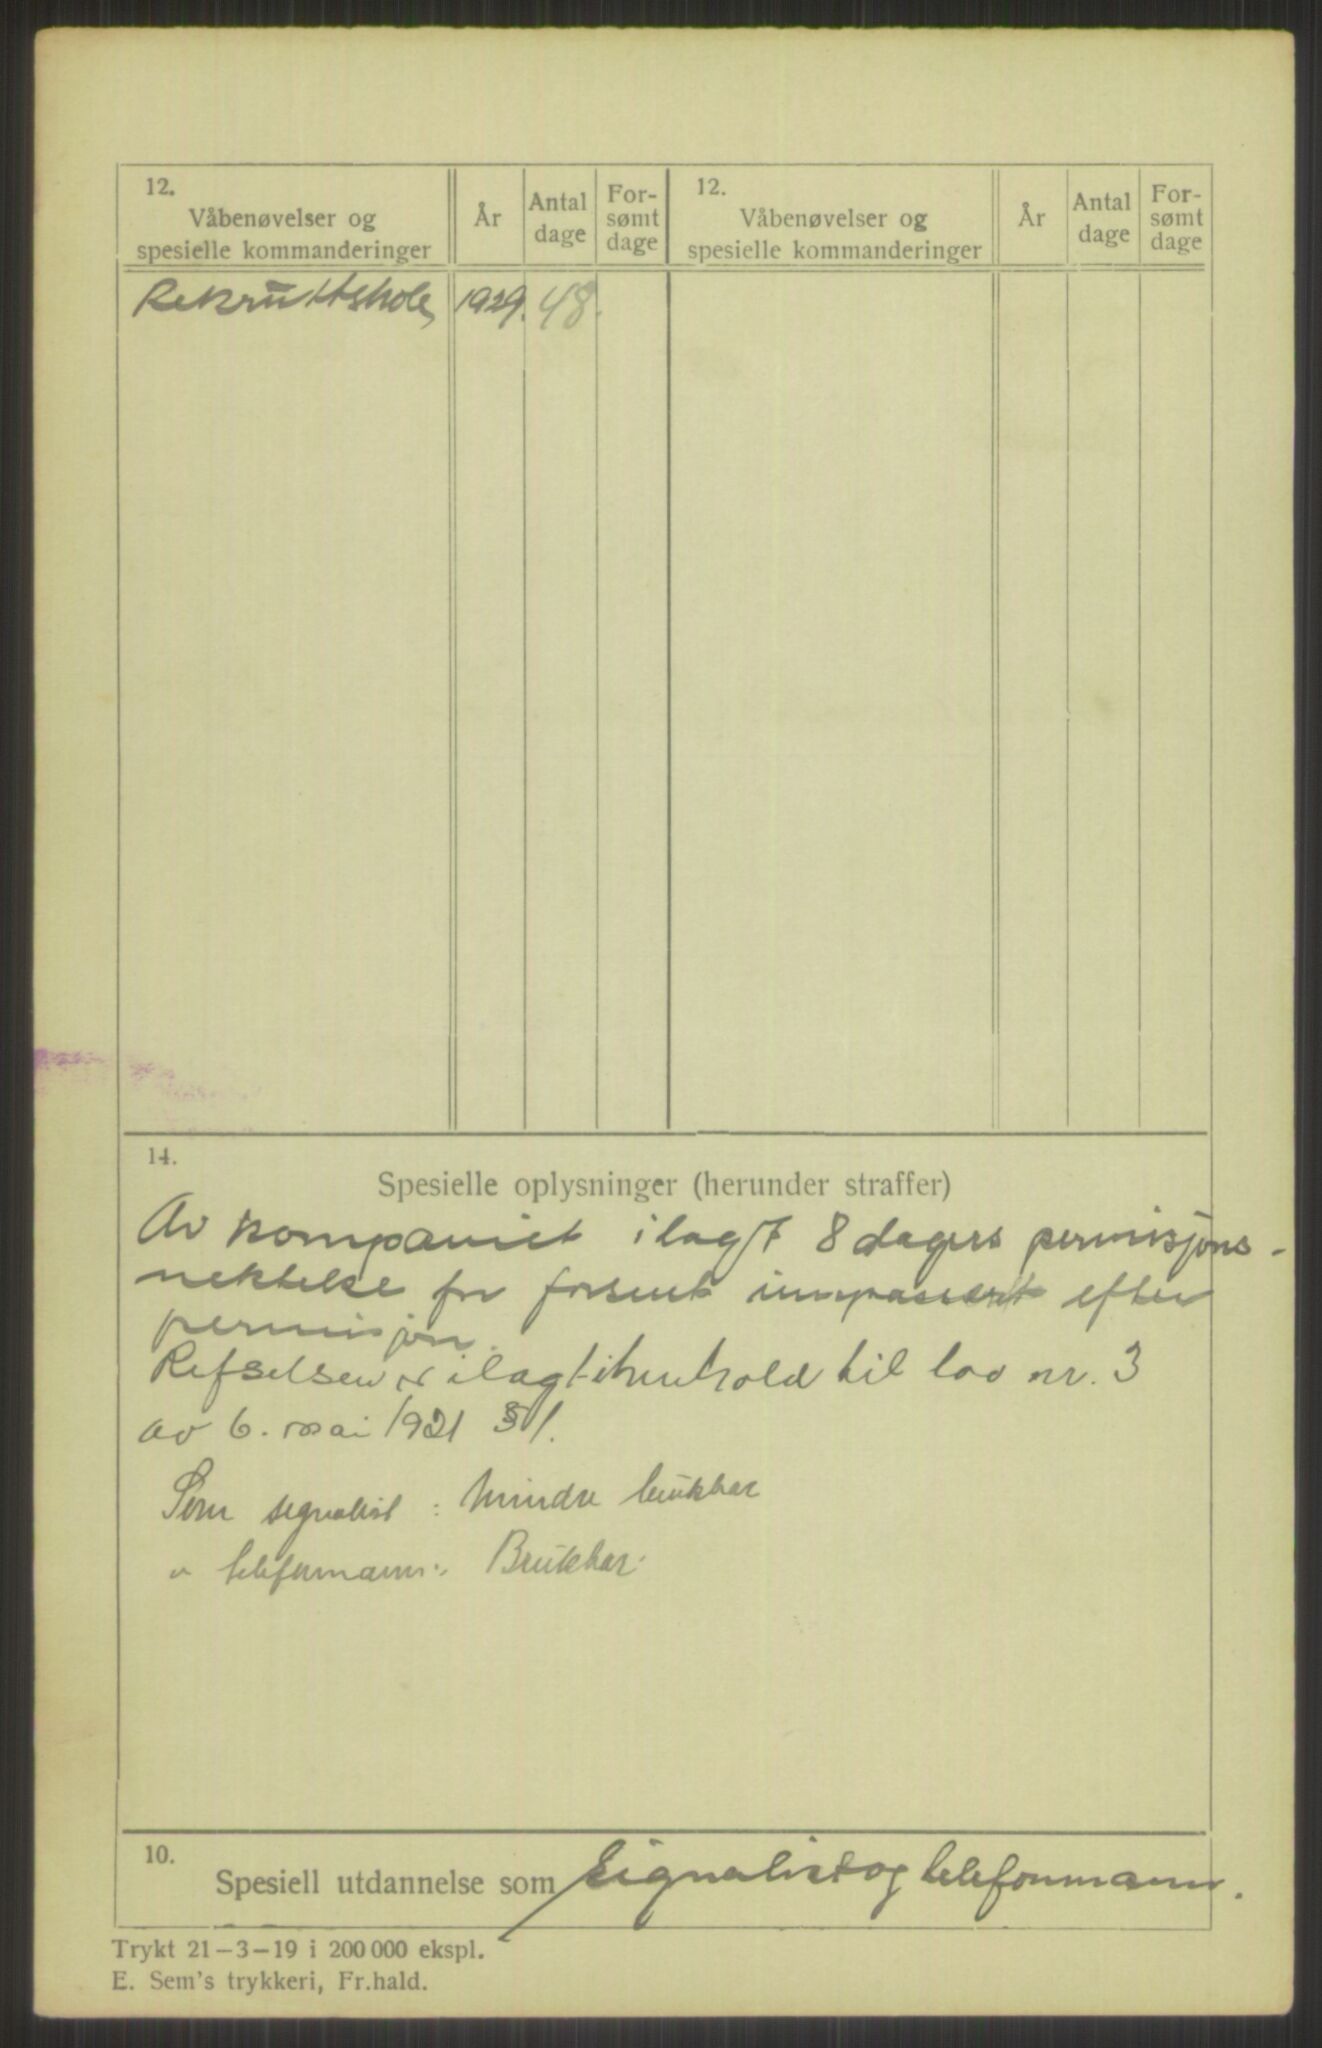 12.
Våbenøvelser og
spesielle kommanderinger
År
Antal
dage
For-
sømt
dage
12.
Våbenøvelser og
spesielle kommanderinger
År
Antal
dage
For-
sømt
dage
Rekruttskole 1929. 48.
14.
Spesielle oplysninger (herunder straffer)
Av kompaniet ilagt 8 dagers permisjons-
nektelse for forsent innpassert efter
permisjon.
Refselsen er ilagt i henhold til lov nr. 3
av 6. mai 1921 § 1.
Som signalist : Mindre brukbar
" telefonmann : Brukbar.
10.
Spesiell utdannelse som signalist og telefonmann.
Trykt 21-3-19 i 200 000 ekspl.
E. Sem's trykkeri, Fr.hald.